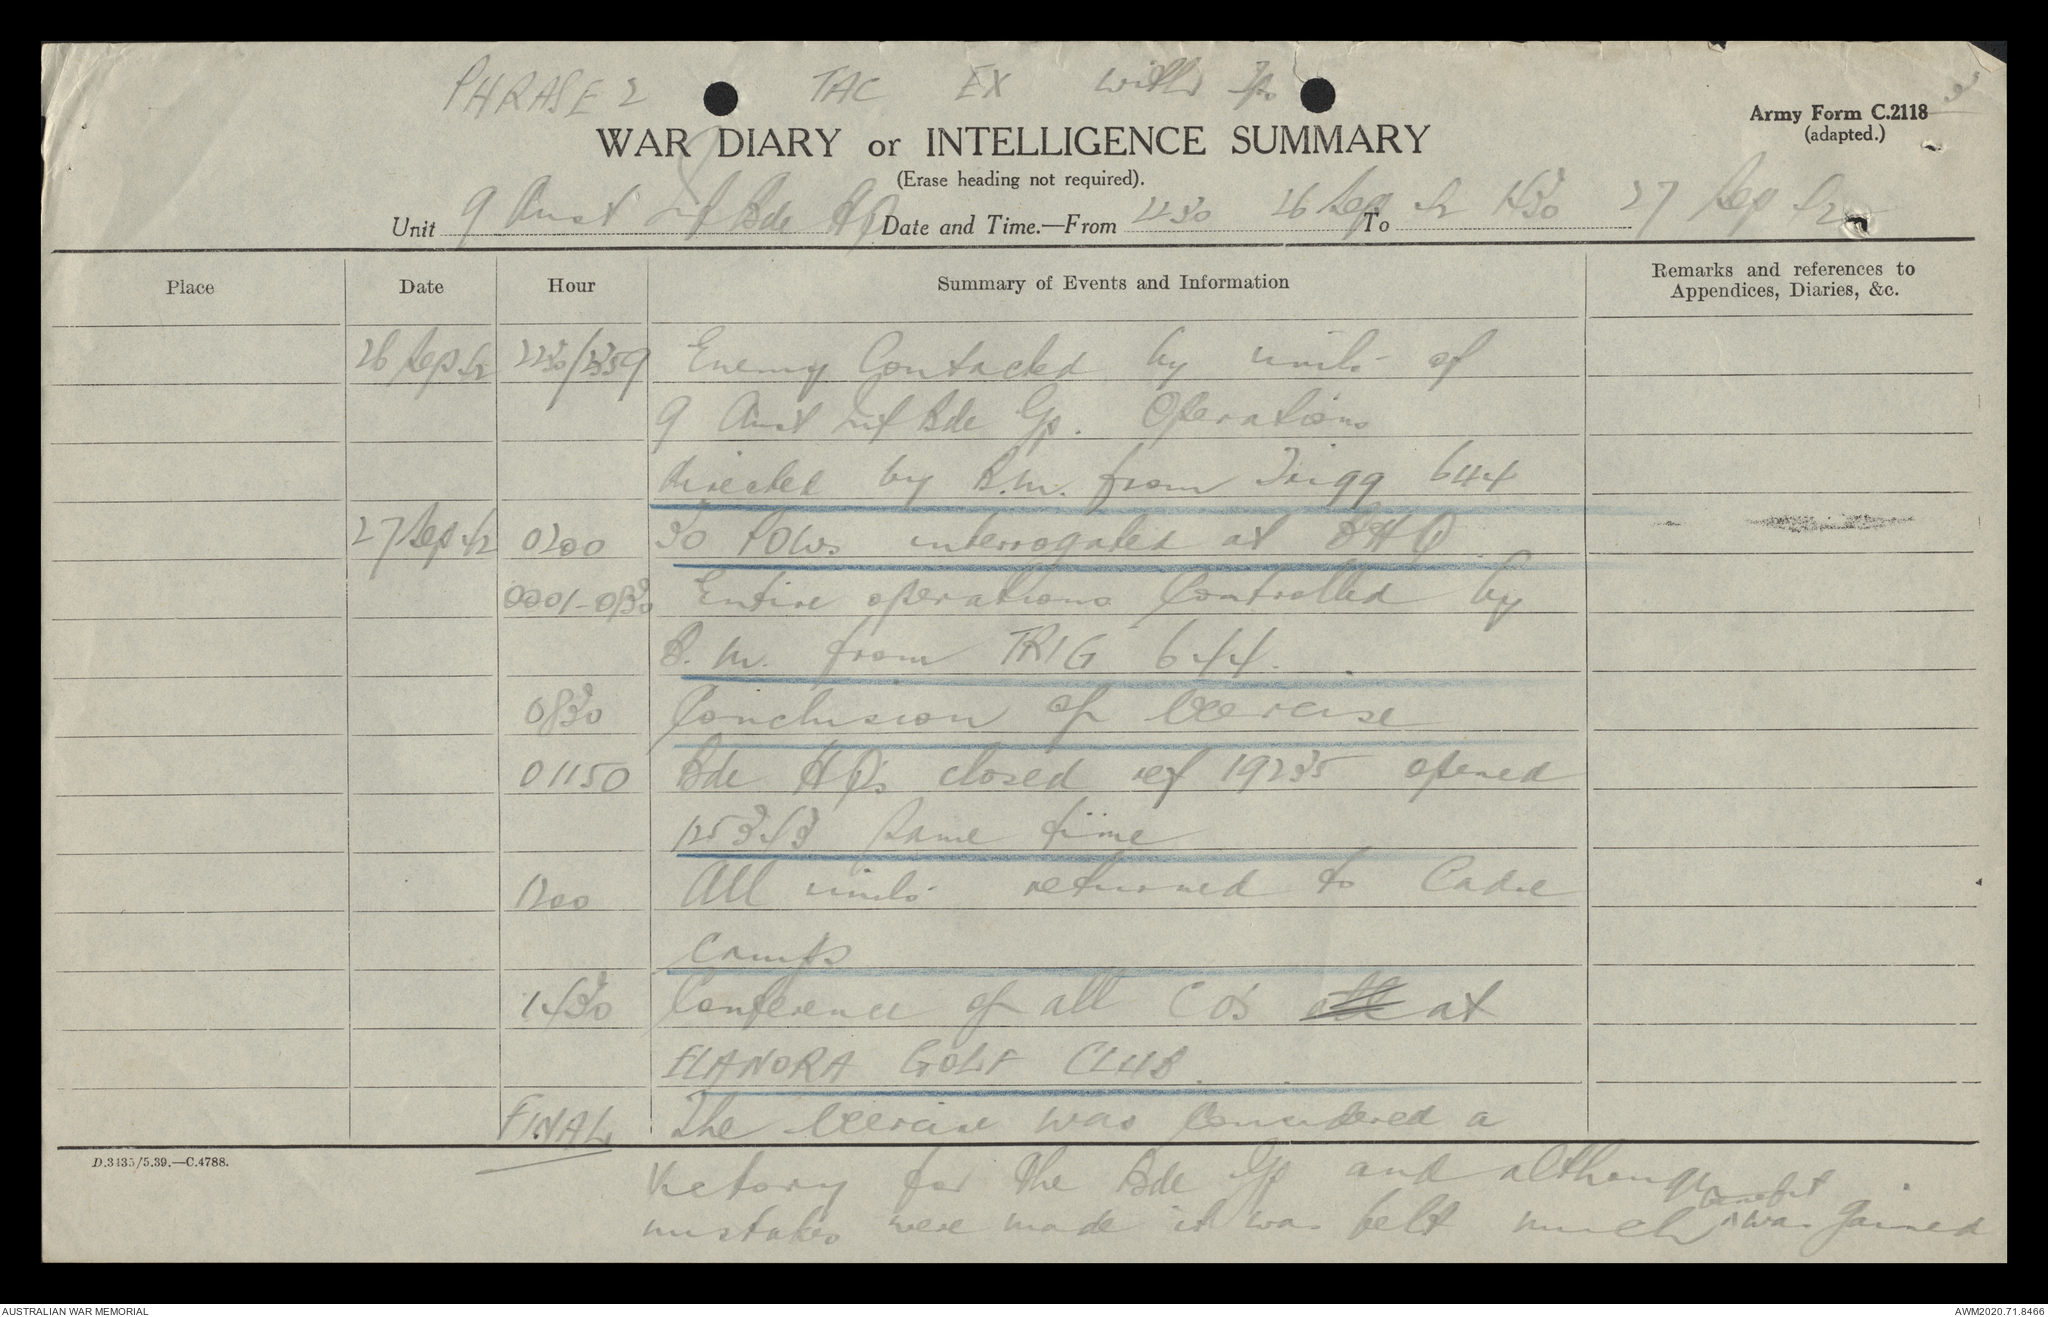 PHRASE 2 TAC EX with Tps
3
Army Form C.2118
(adapted.)
WAR DIARY or INTELLIGENCE SUMMARY
(Erase heading not required).
Unit 9 Aust Inf Bde HQ Date and Time.—From 2230 26 Sep 42 To 1430 27 Sep 42
Place Date Hour Summary of Events and Information Remarks and references to
Appendices, Diaries, &c.
26 Sep 42 2230/2359 Enemy Contacted by units of
9 Aust Inf Bde Gp. Operations
directed by B.M. from Trigg 644
27 Sep 42 0200 30 POWs interrogated at BHQ
0001-0830 Entire operations Controlled by
B.M. from TRIG 644.
0830 Conclusion of Exercise
01150 Bde HQ's closed ref 19235 opened
125343 same time
1200 All units returned to Cadre
Camps
1430 Conference of all COs at
ELANORA GOLF CLUB.
FINAL The Exercise was Considered a
D.3135/5.39.—C.4788.
victory for the Bde Gp and although
mistakes were made it was felt much benefit was gained
AUSTRALIAN WAR MEMORIAL AWM2020.71.8466